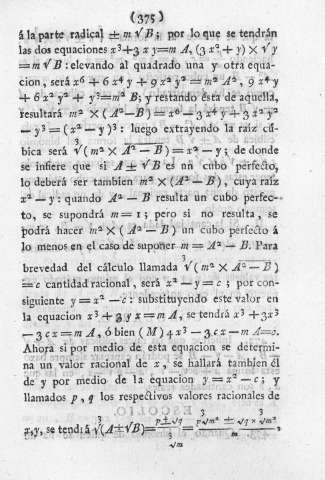 (375)
á la parte radical ± m √B; por lo que se tendrán
las dos equaciones x³+3 x y=m A, (3 x²+y) × √y
=m √B : elevando al quadrado una y otra equa-
cion, será x⁶ + 6 x⁴ y + 9 x² y² = m² A², 9 x⁴ y
+ 6 x² y² + y³=m² B; y restando ésta de aquella,
resultará m² × (A²—B) = x⁶ — 3 x⁴ y + 3 x² y²
— y³ = (x² — y)³ : luego extrayendo la raíz cú-
bica será ∛(m² × A² — B) = x² — y; de donde
se infiere que si A ± √B es un cubo perfecto,
lo deberá ser tambien m² × (A² — B), cuya raíz
x² — y : quando A² — B resulta un cubo perfec-
to, se supondrá m = 1; pero si no resulta, se
podrá hacer m² × (A² — B) un cubo perfecto á
lo menos en el caso de suponer m = A² — B. Para
brevedad del cálculo llamada ∛(m × A² — B)
= c cantidad racional, será x² — y = c ; por con-
siguiente y = x² — c : substituyendo este valor en
la equacion x³ + 3 y x = m A, se tendrá x³ + 3x³
— 3 c x = m A, ó bien (M) 4 x³ — 3 c x — m A=0.
Ahora si por medio de esta equacion se determi-
na un valor racional de x, se hallará tambien él
de y por medio de la equacion y = x² — c ; y
llamados p , q los respectivos valores racionales de
x,y, se tendrá ∛(A±√B) = (p ± √q)/∛m = (p∛m² ± √q × ∛m²)/m ,